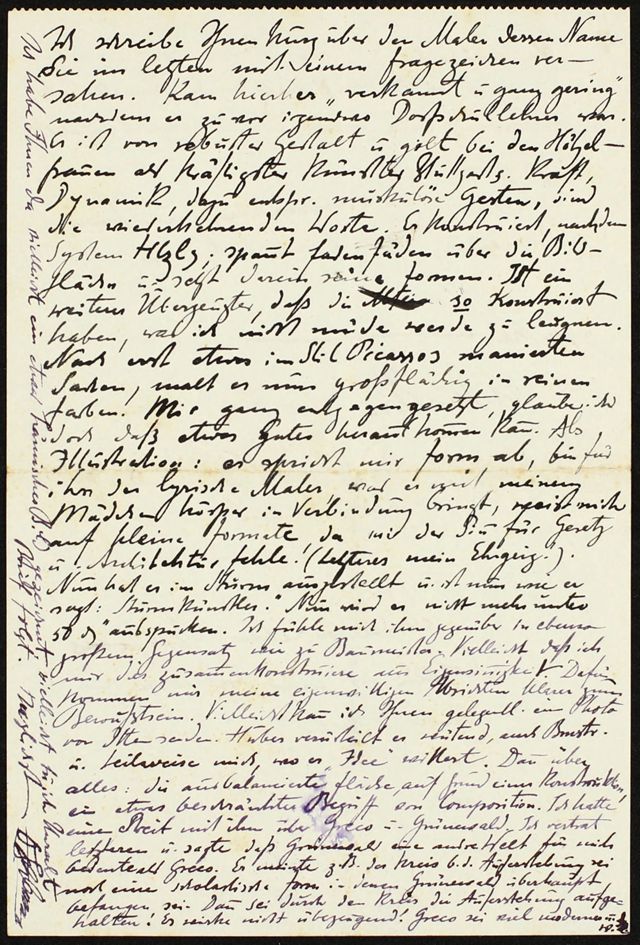 Ich schreibe Ihnen kurz über den Maler dessen Name
Sie im letzten mit einem fragezeichen ver-
sahen. Kam hierher "verkannt u. ganz gering"
nachdem er zuvor irgendwo Dorfschullehrer war.
Er ist von robuster Gestalt u. gilt bei den Hölzel-
frauen als kräftigster Künstler Stuttgarts. Kraft,
Dynamik, dazu entspr. muskulöse Gesten, sind
die wiederkehrenden Worte. Er konstruiert, nach dem
System Hlzlg; spannt fadenfäden über die Bild-
fläche u. setzt darein seine formen. Ist ein
weiterer Überzeugter, daß die Alten so konstruiert
haben, was ich nicht müde werde zu leugnen.
Nach erst etwas im Stil Picassos manierten
Sachen, malt er nun großflächig in reinen
farben. Mir ganz entgegengesetzt, glaube ich
doch daß etwas Gutes herauskommen kann. Als
Illustration: er spricht mir form ab, bin für
ihn der lyrische Maler, was er mit meinem
Mädchen in Verbindung bringt, weist mich
auf kleine formate da mir der Sinn für Gesetz
u. Architektur fehle! (Letzteres mein Ehrgeiz!).
Nun hat er im Sturm ausgestellt u. ist nun wie er
sagt: Sturmkünstler." Nun wird er nicht mehr unter
50 "ausspucken. Ich fühle mich ihm gegenüber in ebenso
großem Gegensatz wie zu Baumeister. Vielleicht daß ich
mir das zusammenkonstruiere aus Eigensinnigkeit. Dafür
kommen mir meine eigenwilligen Absichten klarer zum
Bewußtsein. Vielleicht kann ich Ihnen gelegentl. ein Photo
von Itten senden. Huber verurteilt er wütend, auch Bmstr.
u. teilweise mich, wo er "Idee" wittert. Dann über
alles: die ausbalancierte fläche auf Grund einer Konstruktion,
ein etwas beschränkter Begriff von Composition. Ich hatte
einen Streit mit ihm über Greco u. Grünewald. Ich vertrat
letzteren u. sagte daß Grünewald eine andre Welt für mich
bedeute als Greco. Er meinte z.B. der Kreis b.d. Auferstehung sei
noch eine scholastische form in denen Grünewald überhaupt
befangen sei. Dann sei durch den Kreis die Auferstehung aufge-
halten! Er wirke nicht überzeugend! Greco sei viel moderner und
Ich habe Ihnen da vielleicht ein etwas komisches Bild gezeichnet vielleicht tu ich Unrecht
folgt. Herzlichst